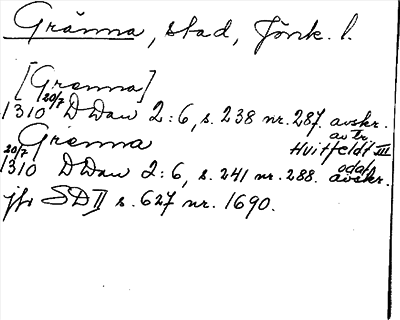 Gränna, stad, Jönk. l.
[Grenna]
1310 20/7 DDan 2:6, s. 238 nr. 287. avskr. av tr. Hvitfeldt III
Grenna
20/7 1310 DDan 2:6, s. 241 nr. 288. odat. avskr.
jfr SD II s. 627 nr. 1690.